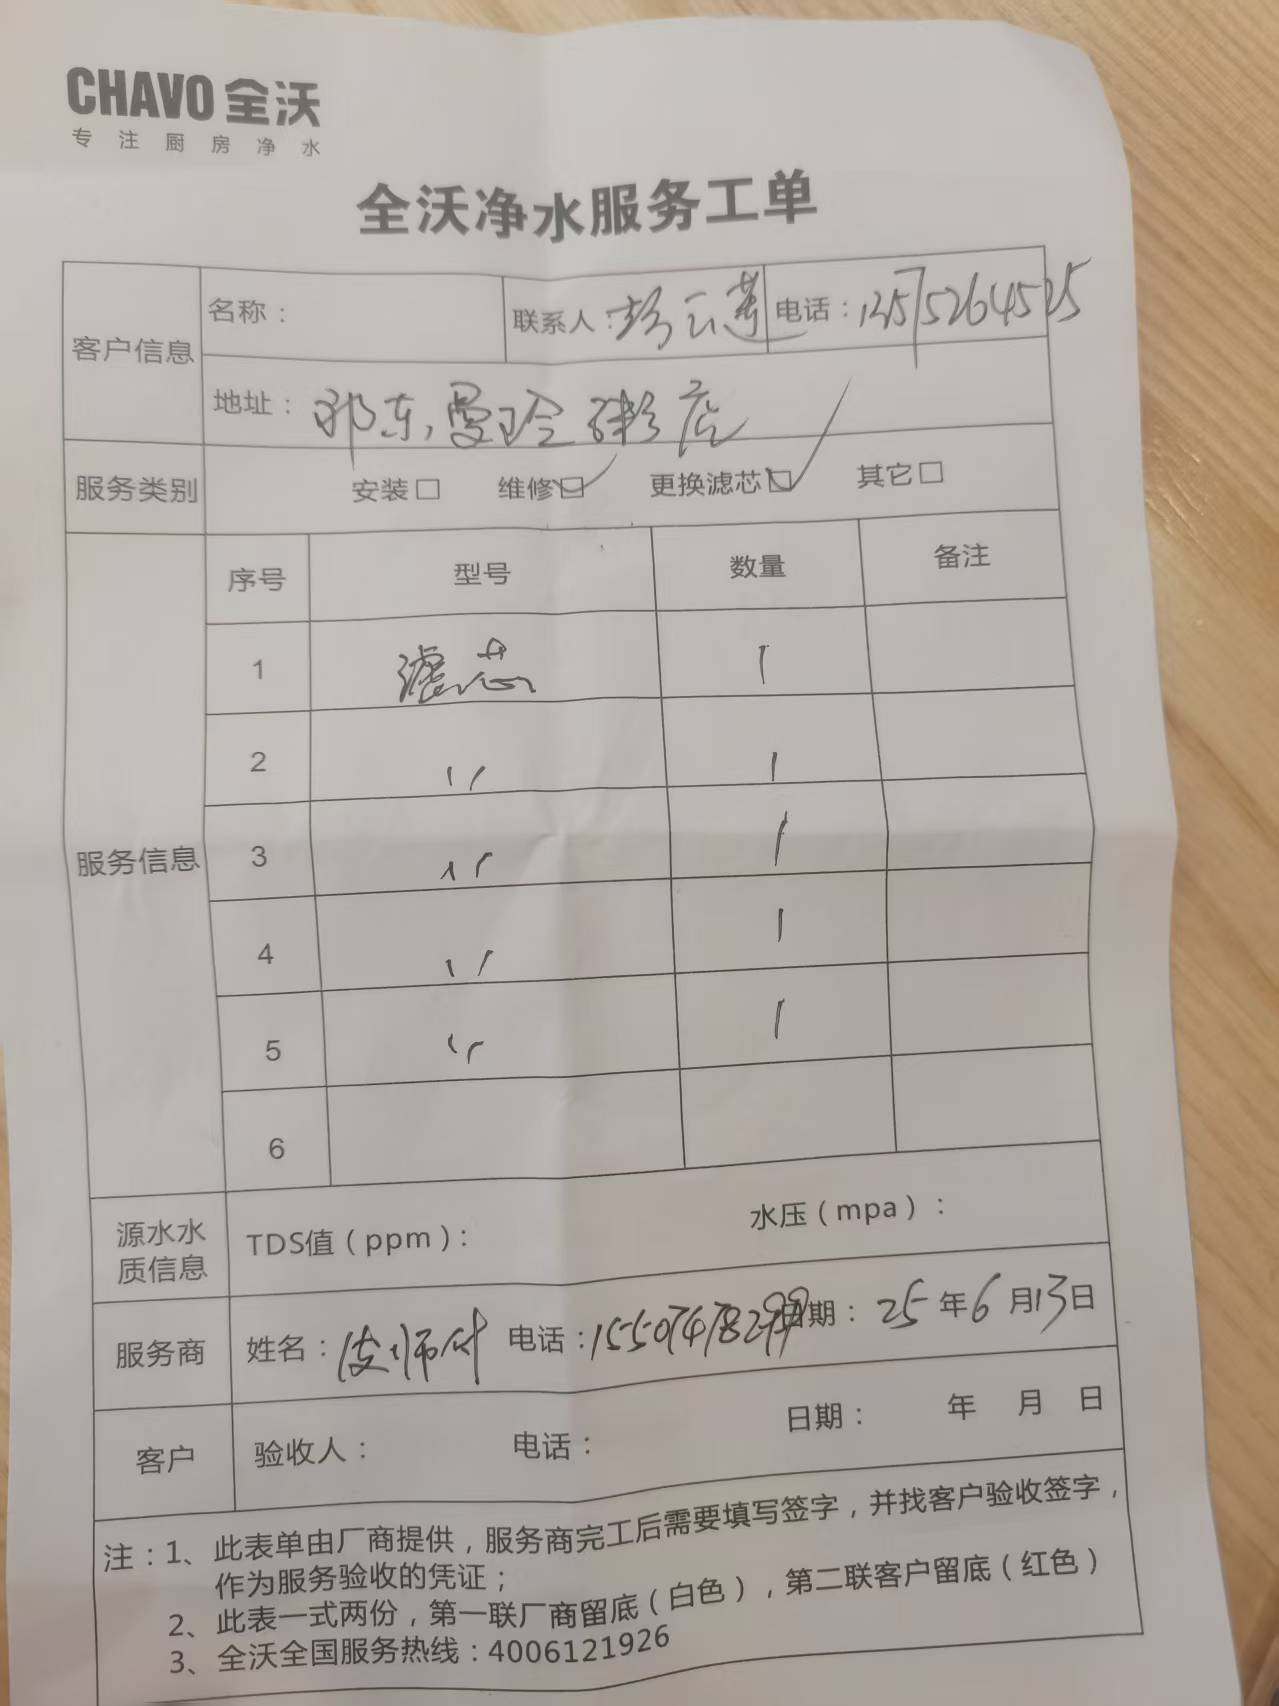 CHAVO 全沃
专注厨房净水
全沃净水服务工单
客户信息
名称：
联系人：彭云莲
电话：
地址：邵东，曼玲粥店
服务类别
安装□ 维修☑ 更换滤芯☑ 其它□
服务信息
序号 型号 数量 备注
1 滤芯 1
2 〃 1
3 〃 1
4 〃 1
5 〃 1
6
源水水质信息
TDS值（ppm）： 水压（mpa）：
服务商
姓名： 电话：15507478299 日期：25年6月13日
客户
验收人： 电话： 日期： 年 月 日
注：1、此表单由厂商提供，服务商完工后需要填写签字，并找客户验收签字，
作为服务验收的凭证；
2、此表一式两份，第一联厂商留底（白色），第二联客户留底（红色）
3、全沃全国服务热线：4006121926